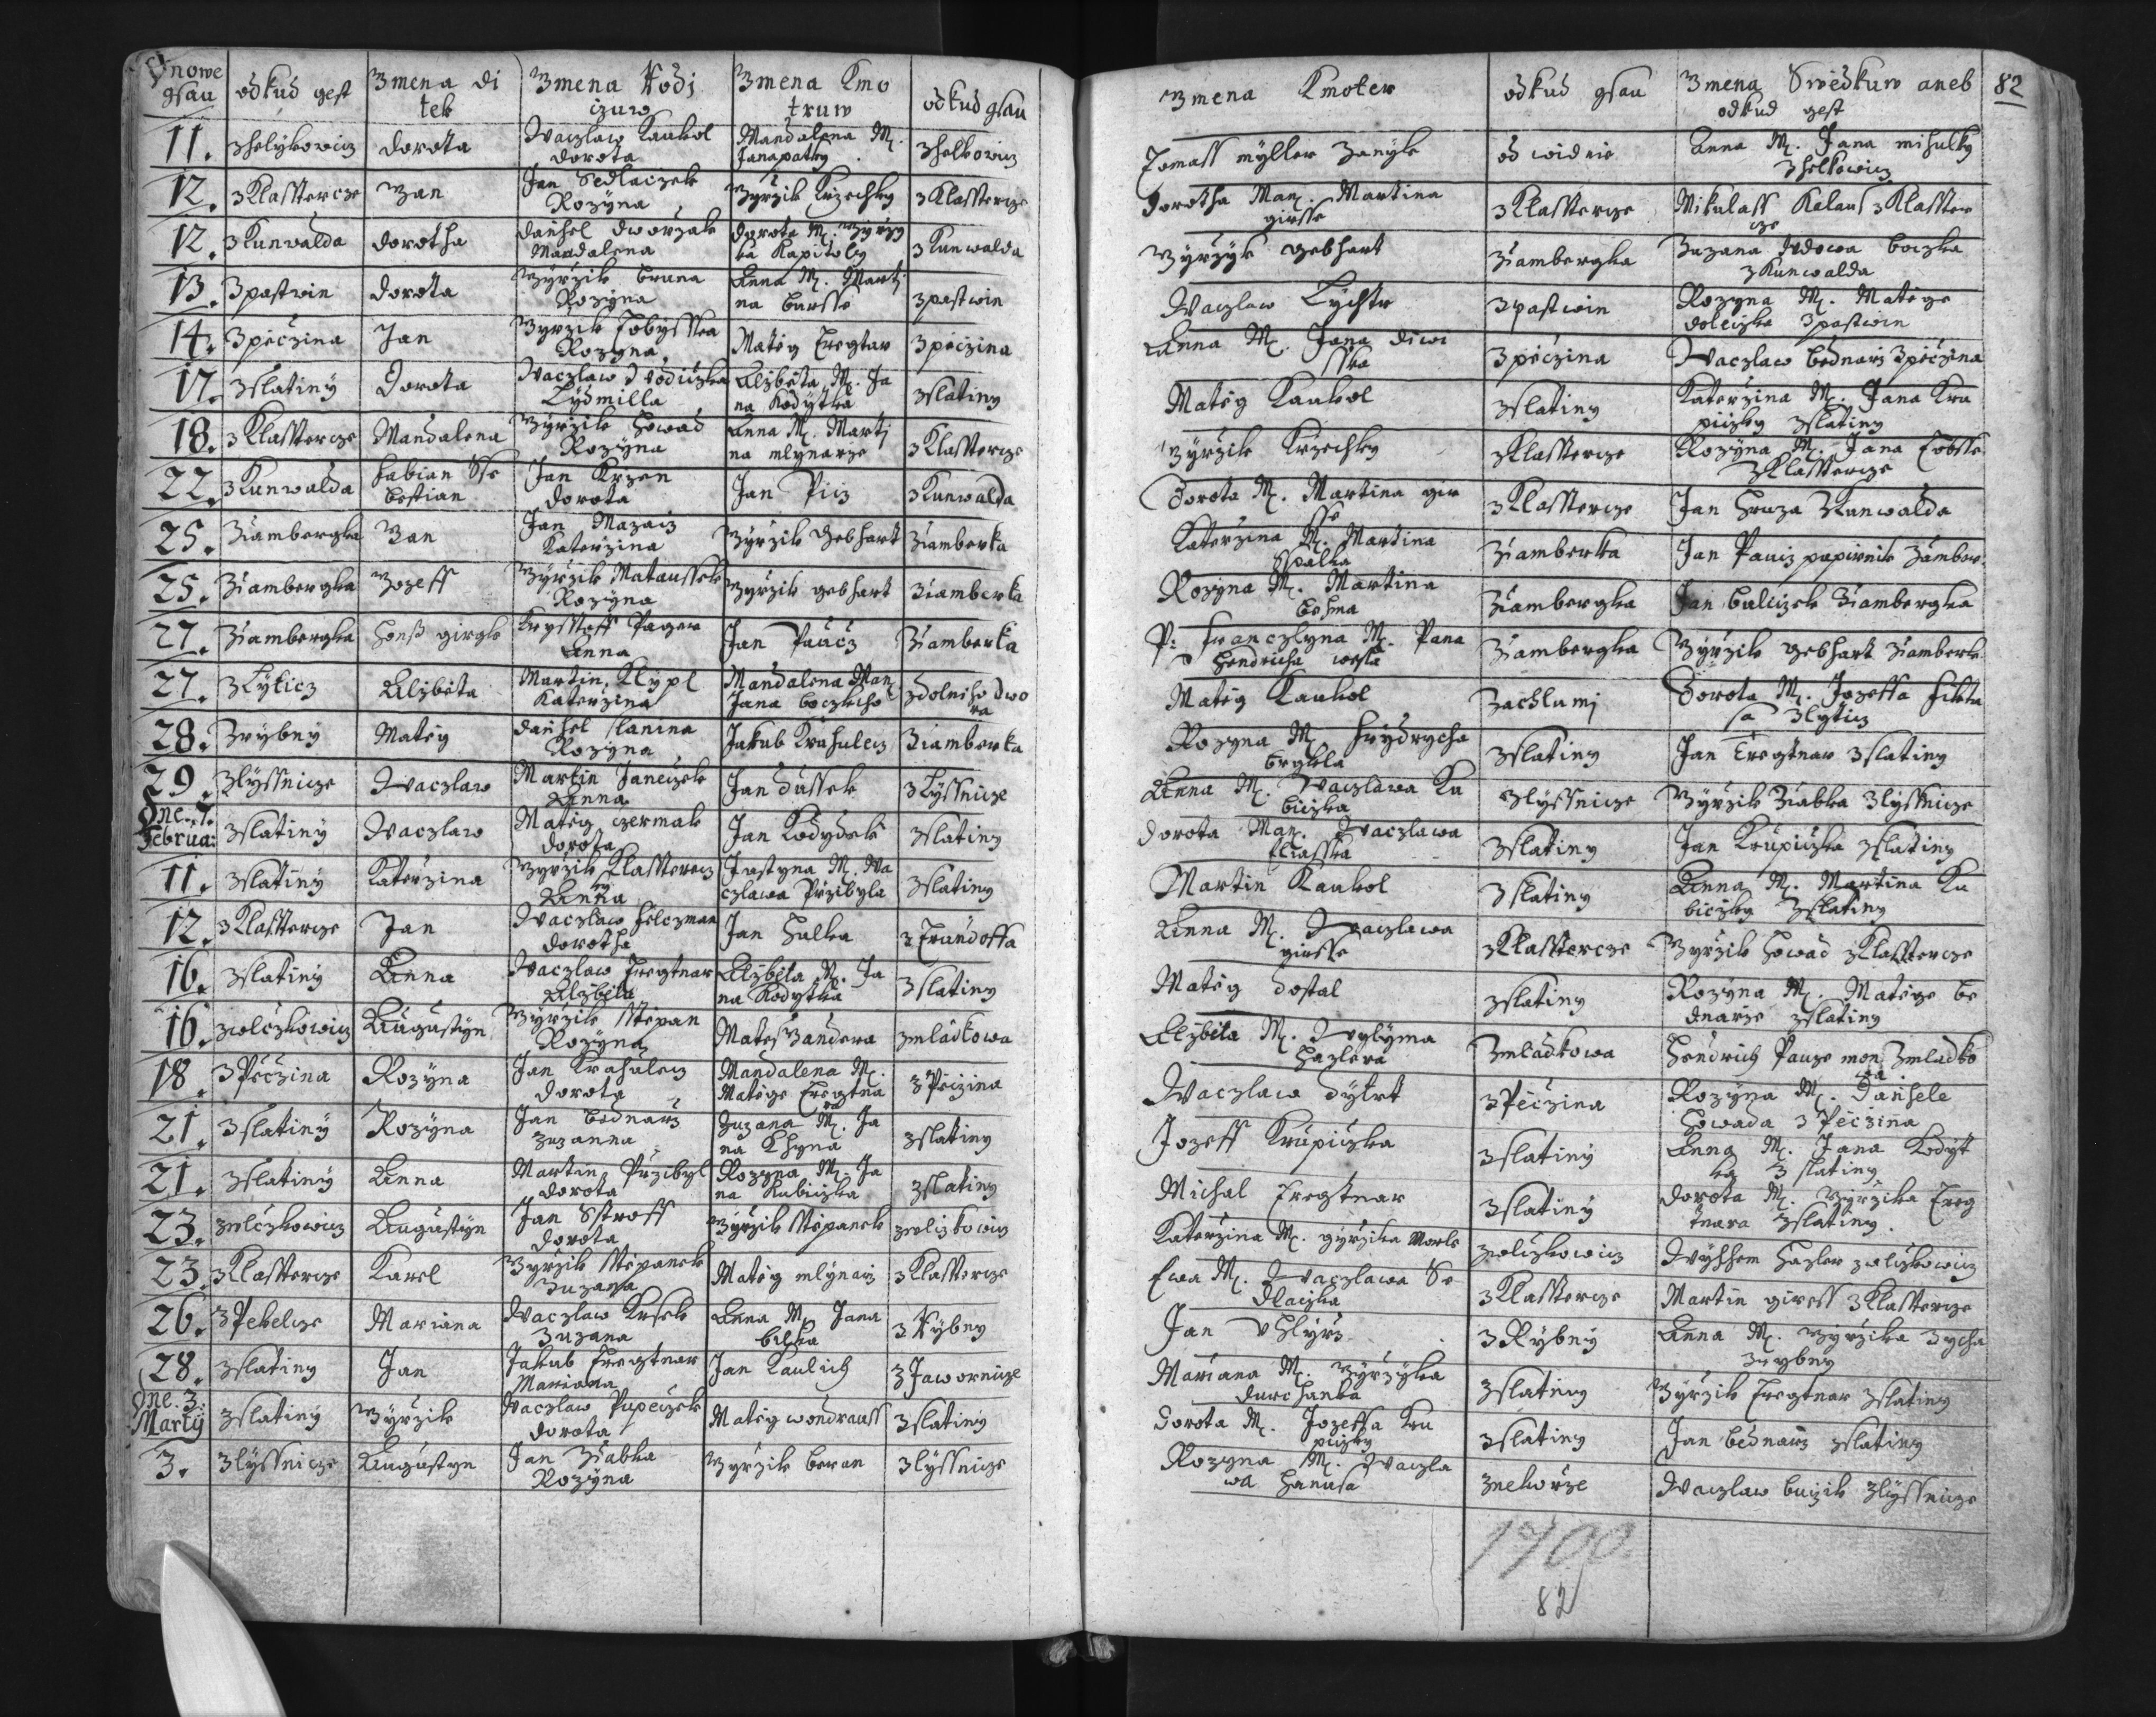 Dnowe gsau | odkud gest | Zmena di tek | Zmena Rodi czuw | Zmena Kmo truw | odkud gsau
11. | z helykowicz | Dorota | Waczlaw Kaukol Dorota | Mandalena M. Jana patky | z helkowicz
12. | z Klassterce | Jan | Jan Sedlaczek Rozyna | Gyrzik Krzechky | z Klassterce
12. | z Kunwalda | Dorotha | Daniel Dworzak Mandalena | Dorota M. Gyrzy ka Kapitoly | z Kunwalda
13. | z pastwin | Dorota | Gyrzik bruna Rozyna | Anna M. Marti na bursse | z pastwin
14. | z peczina | Jan | Gyrzik Tobysska Rozyna | Mateg Fregtar | z peczina
17. | z slatiny | Dorota | Waczlaw Wodiczka Lydmilla | Alzbeta M. Ja na Kodytka | z slatiny
18. | z Klassterce | Mandalena | Gyrzik Howad Rozyna | Anna M. Marti na mlynarze | z Klassterce
22. | z Kunwalda | Fabian Sse bestian | Jan Krzen Dorota | Jan Picz | z Kunwalda
25. | Ziambergka | Jan | Jan Mazacz Katerzina | Gyrzik Gebhart | Ziamberka
25. | Ziambergka | Jozeff | Gyrzik Mataussek Rozyna | Gyrzik gebhart | Ziamberka
27. | Ziambergka | Hans girgk | Krysstoff Pager Anna | Jan Paucz | Ziamberka
27. | z Lyticz | Alzbeta | Martin Klypl Katerzina | Mandalena Man. Jana boczkeho | z dolniho dwo ra
28. | z rybny | Mateg | Daniel slanina Rozyna | Jakub Krahulecz | Ziamberka
29. | z lyssnicze | Waczlaw | Martin Janeczek Anna | Jan Dussek | z Lyssnicze
Dne. 7. Februa: | z slatiny | Waczlaw | Mateg czermak Dorota | Jan Kodydek | z slatiny
11. | z slatiny | Katerzina | Gyrzik Klasstereczky Anna | Justyna M. Wa czlawa Przibyla | z slatiny
12. | z Klassterce | Jan | Waczlaw Felczman Dorotha | Jan Halka | z Frandoffa
16. | z slatiny | Anna | Waczlaw Fregtnar Alzbeta | Alzbeta M. Ja na Kodytka | z slatiny
16. | z wlczkowicz | Augustyn | Gyrzik Sstepan Rozyna | Mates Jandera | z mladkowa
18. | z Peczina | Rozyna | Jan Krahulecz Dorota | Mandalena M. Matege Fregtna ra | z Peczina
21. | z slatiny | Rozyna | Jan bednarz Zuzanna | Zuzana M. Ja na Khyna | z slatiny
21. | z slatiny | Anna | Martin Przibyl Dorota | Rozyna M. Ja na Kubiczka | z slatiny
23. | z wlczkowicz | Augustyn | Jan Sstroff Dorota | Gyrzik Sstepanek | z wlczkowicz
23. | z Klassterce | Karel | Gyrzik Sstepanek Zuzana | Mateg mlynarz | z Klassterce
26. | z Pekelce | Mariana | Waczlaw Kusek Zuzana | Anna M. Jana bilka | z Rybny
28. | z slatiny | Jan | Jakub Fregtnar Mariana | Jan Kaulich | z Jawornicze
Dne. 3. Marty | z slatiny | Gyrzik | Waczlaw Pupeczek Dorota | Mateg wondrauss | z slatiny
3. | z lyssnicze | Augustyn | Jan Ziabka Rozyna | Gyrzik beran | z lyssnicze
Zmena Kmoter | odkud gsau | Zmena Swedkuw aneb odkud gest | 82
Tomass myller Zanyk | od widnie | Anna M. Jana mihulky z helkowicz
Dorotha Man. Martina girsse | z Klassterce | Mikulass Kalaus z Klasster cze
Gyrzyk Gebhart | Ziambergka | Zuzana Wdowa boczka z Kunwalda
Waczlaw Lychtr | z pastwin | Rozyna M. Matege doleczka z pastwin
Anna M. Jana diwi sska | z peczina | Waczlaw bednarz z peczina
Mateg Kaukol | z slatiny | Katerzina M. Jana Kru piczky z slatiny
Gyrzik Krzechky | z Klassterce | Rozyna M. Jana Kobsse z Klassterce
Dorota M. Martina gir sse | z Klassterce | Jan Hruza z Kunwalda
Katerzina M. Martina Sspalka | Ziamberka | Jan Paucz papirnik Ziamber.
Rozyna M. Martina behma | Ziambergka | Jan balczek Ziambergka
P: Franczlyna M. Pana Hendricha wesla | Ziambergka | Gyrzik gebhart Ziamberk
Mateg Kaukol | Zachlumi | Dorota M. Jozeffa Fikta sa z lyticz
Rozyna M. Frydrycha brykla | z slatiny | Jan Fregtnar z slatiny
Anna M. Waczlawa Ku biczka | z lyssnicze | Gyrzik Ziabka z lyssnicze
Dorota Man. Waczlawa Eliasska | z slatiny | Jan Krupiczka z slatiny
Martin Kaukol | z slatiny | Anna M. Martina Ku biczky z slatiny
Anna M. Waczlawa girsse | z Klassterce | Gyrzik Howad z Klassterce
Mateg Dostal | z slatiny | Rozyna M. Matege be dnarze z slatiny
Alzbeta M. Wylyma Hazlera | z mladkowa | Hendrich Pauze mon z mladko wa
Waczlaw Dytrt | z Peczina | Rozyna M. Daniele Howada z Peczina
Jozeff Krupiczka | z slatiny | Anna M. Jana Kodyt ka z slatiny
Michal Fregtnar | z slatiny | Dorota M. Gyrzika Freg tnara z slatiny.
Katerzina M. gyrzika Morle | z wlczkowicz | Wylhem Hazler z wlczkowicz
Ewa M. Waczlawa Se dlaczka | z Klassterce | Martin giress z Klassterce
Jan Uhlyrz | z Rybny | Anna M. Gyrzika Zycha z rybny
Mariana M. Gyrzyka Durchanka | z slatiny | Gyrzik Fregtnar z slatiny
Dorota M. Jozeffa Kru piczky | z slatiny | Jan bednarz z slatiny
Rozyna M. Waczla wa Hanusa | z nekorze | Waczlaw buczik z lyssnicze
1700.
82